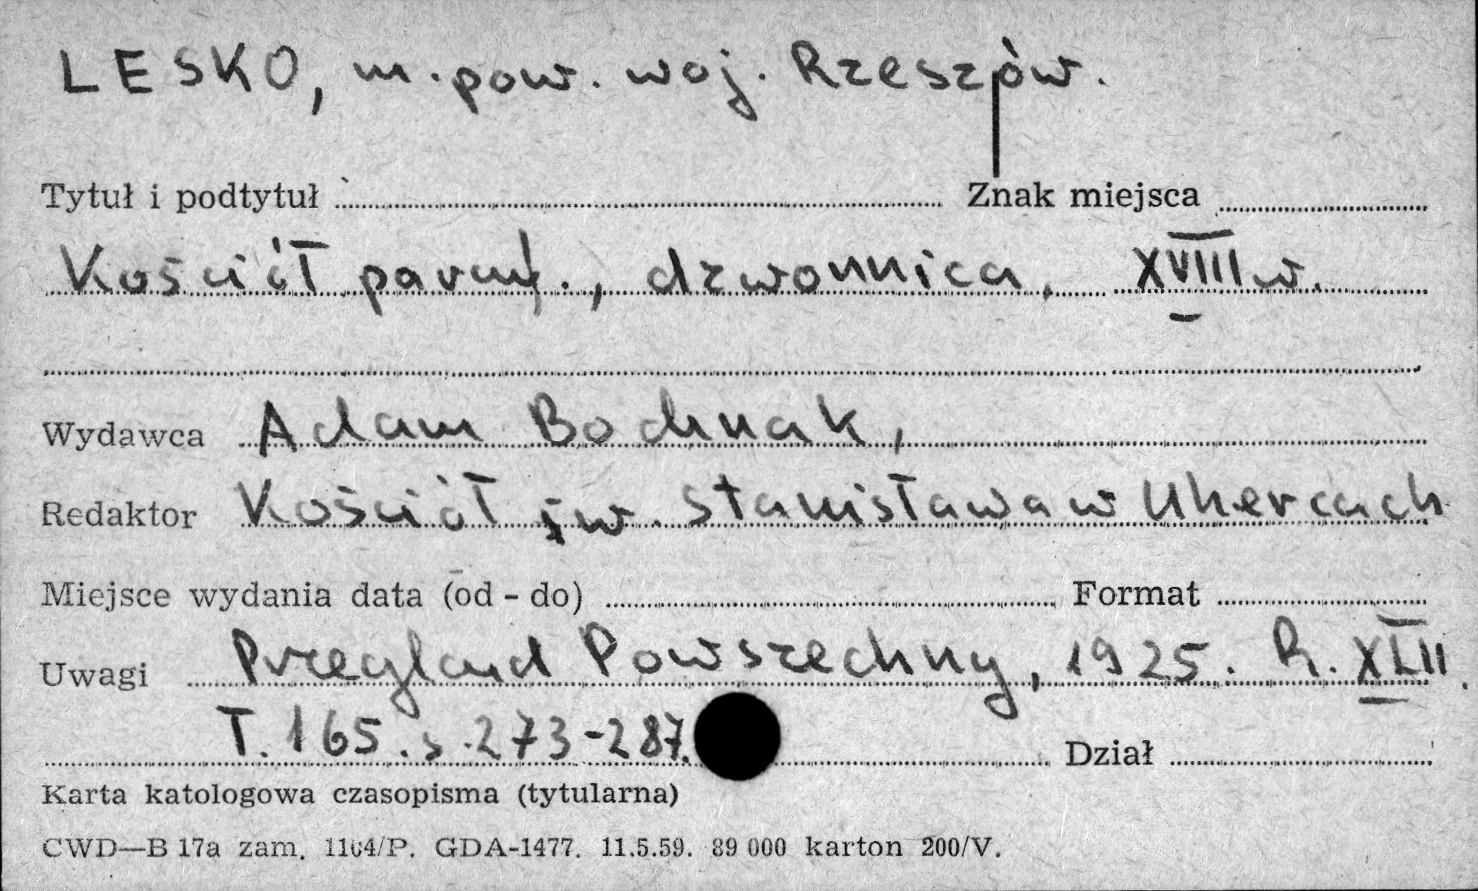 LESKO, m. pow. woj. Rzeszów.
Tytuł i podtytuł Znak miejsca
Kościół paraf., dzwonnica, XVIII w.
Wydawca Adam Bochnak,
Redaktor Kościół św. Stanisława w Uhercach
Miejsce wydania data (od - do) Format
Uwagi Przegląd Powszechny, 1925. R. XLII.
T. 165. s. 273-287. Dział
Karta katologowa czasopisma (tytularna)
CWD—B 17a zam. 1104/P. GDA-1477. 11.5.59. 89 000 karton 200/V.